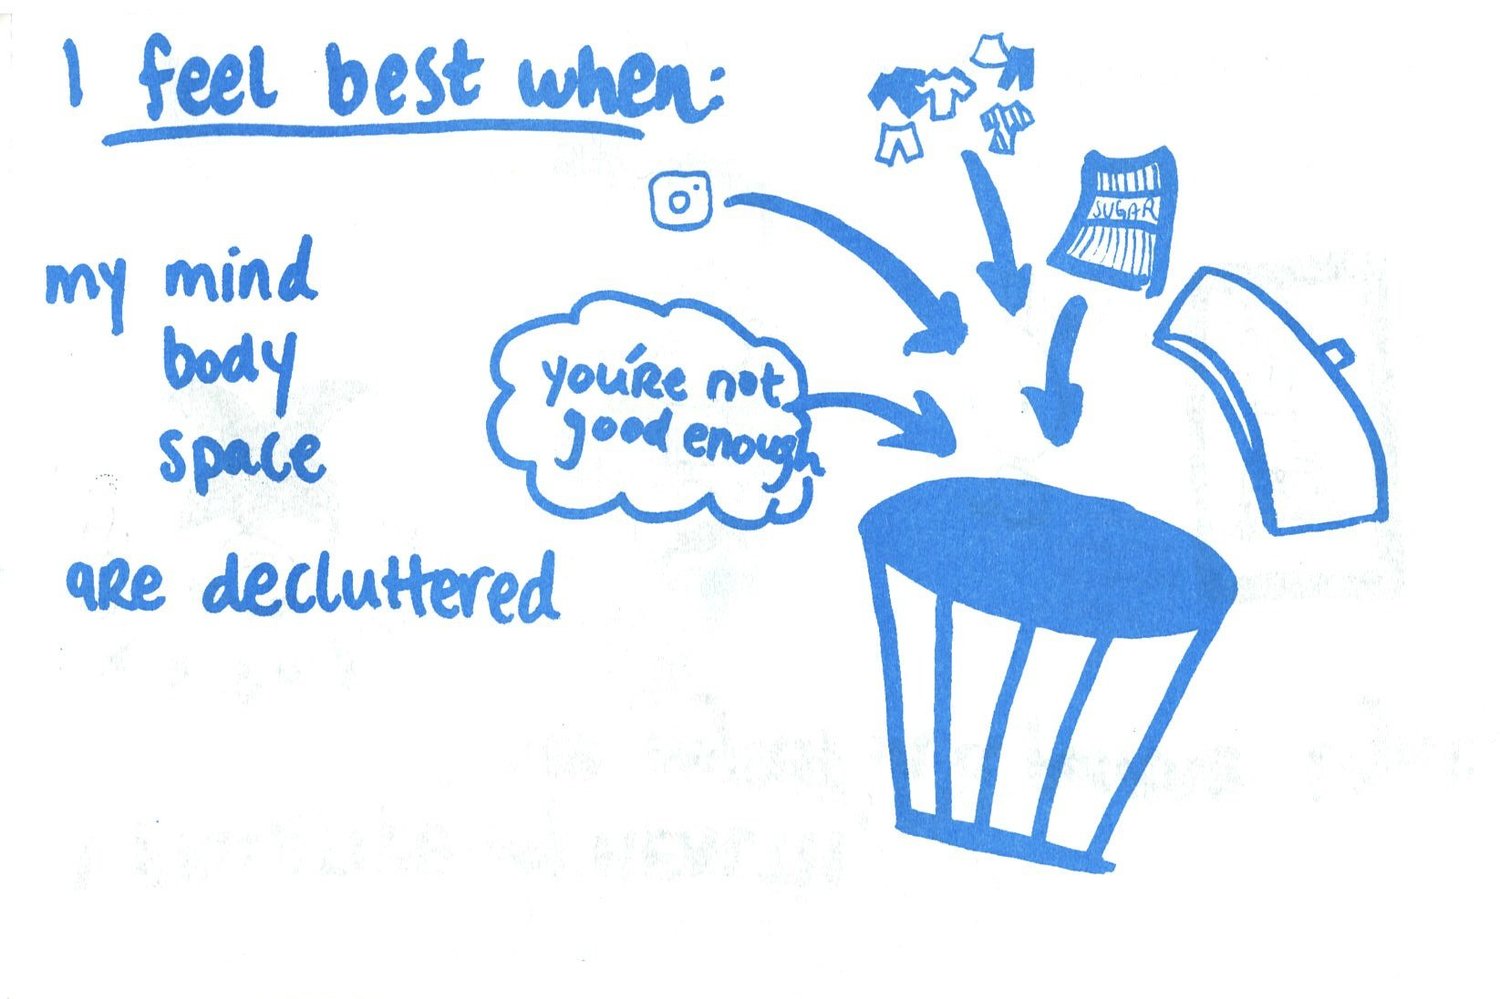 I feel best when:
my mind
body
space
are decluttered
you're not
good enough
SUGAR